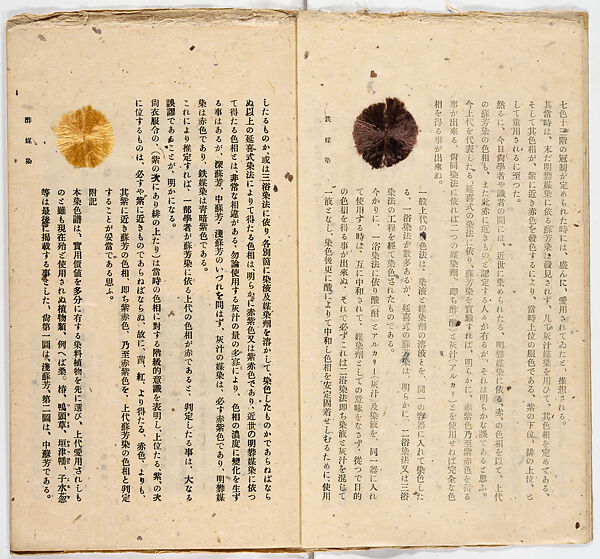 七色十三階の冠制が定められた時には、盛んに、愛用されてあたと、推想される。
其當時は、未だ明礬媒染に依る蘇芳染は發見されず、凡て灰汁媒染を用ひて、其色相を定めてある。
そして其色相が、紫に近き赤色を發色するにより、當時上位の服色である、紫の下位、緋の上位、と
して重用されるに至つた。
然るに、今日尙學者や識者の間には、近世に染められたる、明礬媒染に依る、赤、の色相を以て、上代
の蘇芳染の色相も、また此赤に近きものと認定する人々が有るが、それは明らかな誤であると思ふ。
今上代を代表したる、延喜式の染法に依り、蘇芳染を實驗すれば、明らかに、赤紫色乃至紫赤色を得る
事が出來る。尙同染法に依れば二つの媒染劑、即ち酢酸と灰汁(アルカリ)とを使用せねば完全な色
相を得る事が出來ぬ。
一般上代の染色法は、染液と媒染劑の溶液とを、同一の容器に入れて染色した
る、一浴染法が數多あるが、延喜式の蘇方染は、明らかに、二浴染法又は三浴
染法の工程を經て染色されたものである。
今かりに、一浴染法に依り酸(酢)とアルカリ(灰汁)及染液を、同一器に入れ
て使用する時は、互に中和されて、媒染劑としての意味をなさず、從つて目的
の色相を得る事が出來ぬ、それで必ずこれは二浴染法即ち染液と灰汁を混じて
一液となし、染色後更に酸によりて中和し色相を安定固着せしむるために、使用
鐵媒染
したるものか、或は三浴染法に依り、各別箇に染液及媒染劑を溶かして、染色したものかであらねばなら
ぬ以上の延喜式染法によりて得たる色相は、明らかに赤紫色又は紫赤色であり、近世の明礬媒染に依つ
て得たる色相とは、非常な相違がある、勿論使用する灰汁の量の多寡により、色相の濃度に變化を生ず
る事はあるが、深蘇芳、中蘇芳、淺蘇芳のいづれを問はず、灰汁の媒染は、必ず赤紫色であり、明礬媒
染は赤色であり、鐵媒染は靑暗紫色である。
これにより推定すれば、一部學者が蘇芳染に依る上代の色相が赤であると、判定したる事は、大なる
誤謬であることが、明かになる。
尙衣服令の、(紫の次にあり緋の上たり)は當時の色相に對する階級的意識を表明し、上位たる、紫、の次
に位するものは、必ずや紫に近きものであらねばならぬ、故に、茜、紅、より得たる、赤色、よりも、
其紫に近き蘇芳の色相、即ち紫赤色、乃至赤紫色を、上代蘇芳染の色相と判定
することが妥當であると思ふ。
附記
本染色譜は、實用價値を多分に有する染料植物を先に選び、上代愛用されしも
のと雖も現在殆ど使用されぬ植物類、例へば桑。椿、鴨頭草、垣津幡、子水葱
等は最後に揭載する事とした、尙第一圖は、淺蘇芳、第二圖は、中蘇芳である。
酢媒染